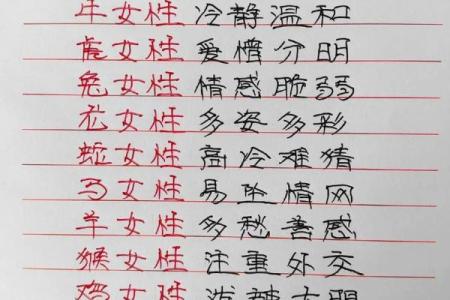 牛女性 冷静温和
虎女性 爱憎分明
兔女性 情感脆弱
龙女性 多姿多彩
蛇女性 高冷难猜
马女性 易坠情网
羊女性 多愁善感
猴女性 注重外交
鸡女性 泼辣大胆